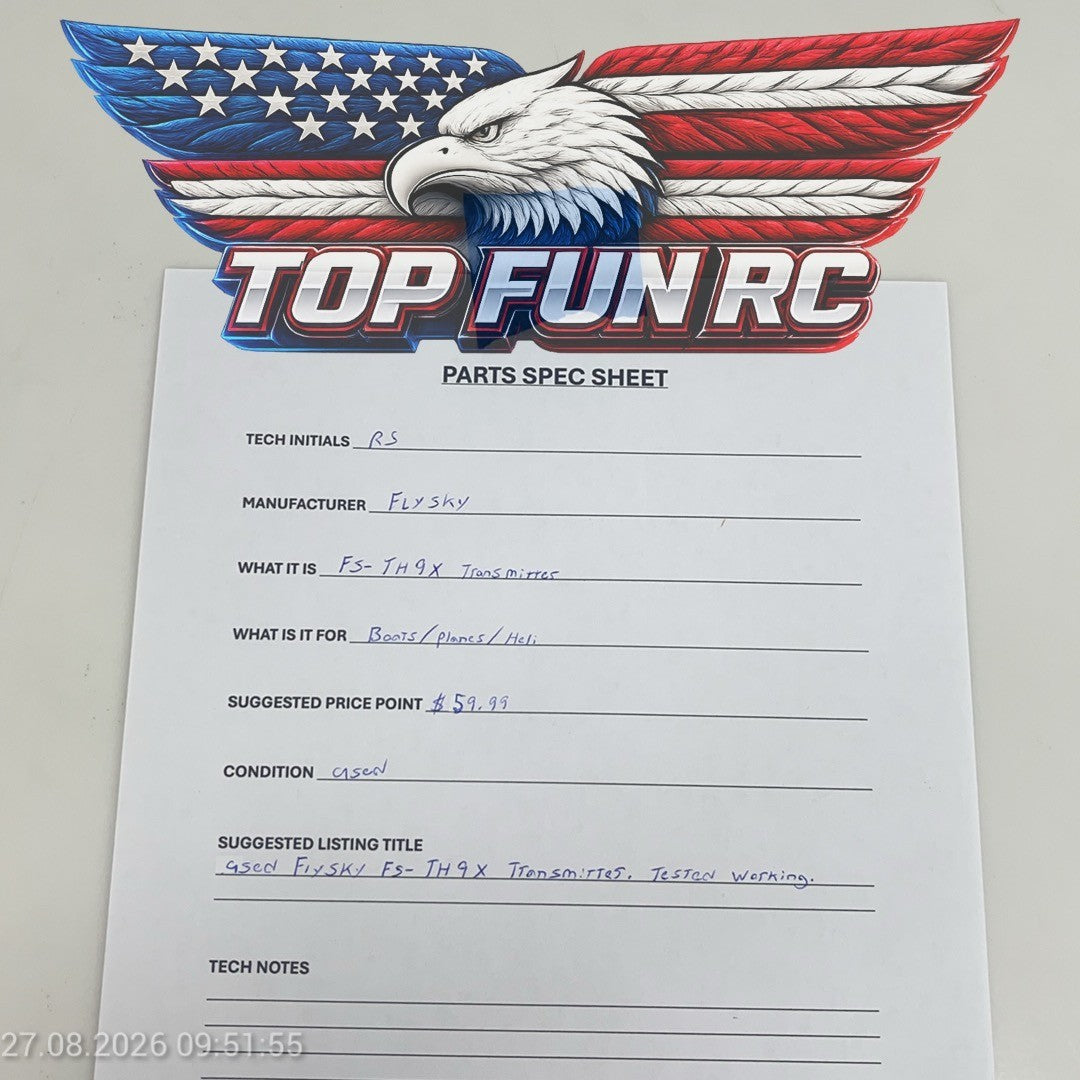 TOP FUN RC
PARTS SPEC SHEET
TECH INITIALS RS
MANUFACTURER FLYSKY
WHAT IT IS FS-TH9X Transmitter
WHAT IS IT FOR Boats/planes/Heli
SUGGESTED PRICE POINT $59.99
CONDITION used
SUGGESTED LISTING TITLE
used FlySKY FS-TH9X Transmitter. Tested working.
TECH NOTES
27.08.2026 09:51:55